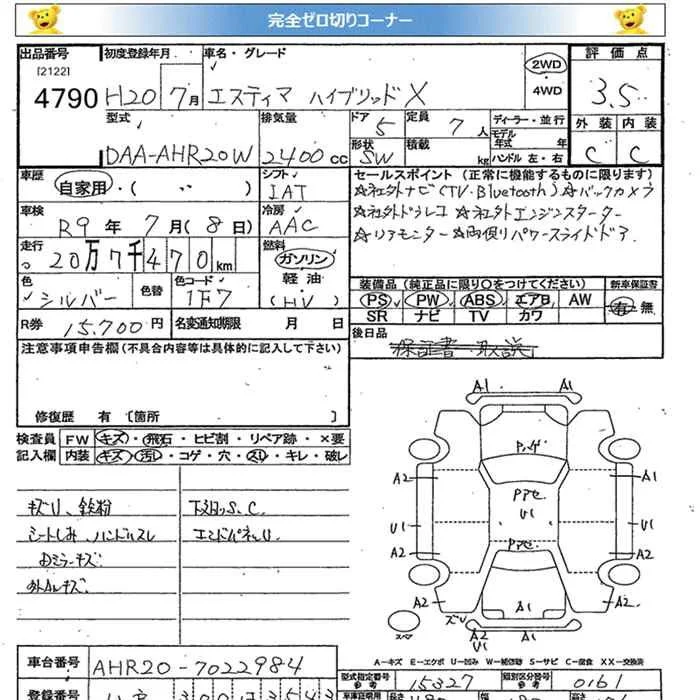 完全ゼロ切りコーナー
出品番号 初度登録年月 車名・グレード 評価点
[2122]
4790 H20 7月 エスティマ ハイブリッド X 2WD・4WD 3.5
型式 排気量 ドア 5 定員 7人 ディーラー・並行 外装 内装
モデル年式 年
DAA-AHR20W 2400cc 形状 SW 積載 kg ハンドル 左・右 C C
車歴 自家用・( 〃 ) シフト IAT セールスポイント (正常に機能するものに限ります)
☆社外ナビ(TV・Bluetooth) ☆バックカメラ
車検 R9年 7月(8日) 冷房 AAC ☆社外ドラレコ ☆社外エンジンスターター
走行 20万7千470km 燃料 ガソリン ☆リアモニター ☆両側パワースライドドア
軽油
(HV)
色 シルバー 色替 色コード 1F7 装備品(純正品に限り○をつけてください) 新車保証書
PS PW ABS エアB AW 有・無
R券 15,700円 名変通知期限 月 日 SR ナビ TV カワ
後日品 保証書・取説
注意事項申告欄(不具合内容等は具体的に記入して下さい)
修復歴 有 [箇所 ]
検査員 FW キズ・飛石・ヒビ割・リペア跡・×要
記入欄 内装 キズ・汚レ・コゲ・穴・スレ・キレ・破レ
キズU、鉄粉 下スロッS、C
シートしみ、ハンドルスレ エンドパネルU
Dミラーキズ
外Aルキズ
A1 A1
Pハゲ
A2 A1
Pアセ
U1
U1 U1
A2 Pアセ A2
A2 ズU A1 A2
スペア A2 A1
U1
A-キズ E-エクボ U-凹み W-補修跡 S-サビ C-腐食 XX-交換済
車台番号 AHR20-7022984
型式指定番号 参考 15327 類別区分番号 参考 0161
登録番号